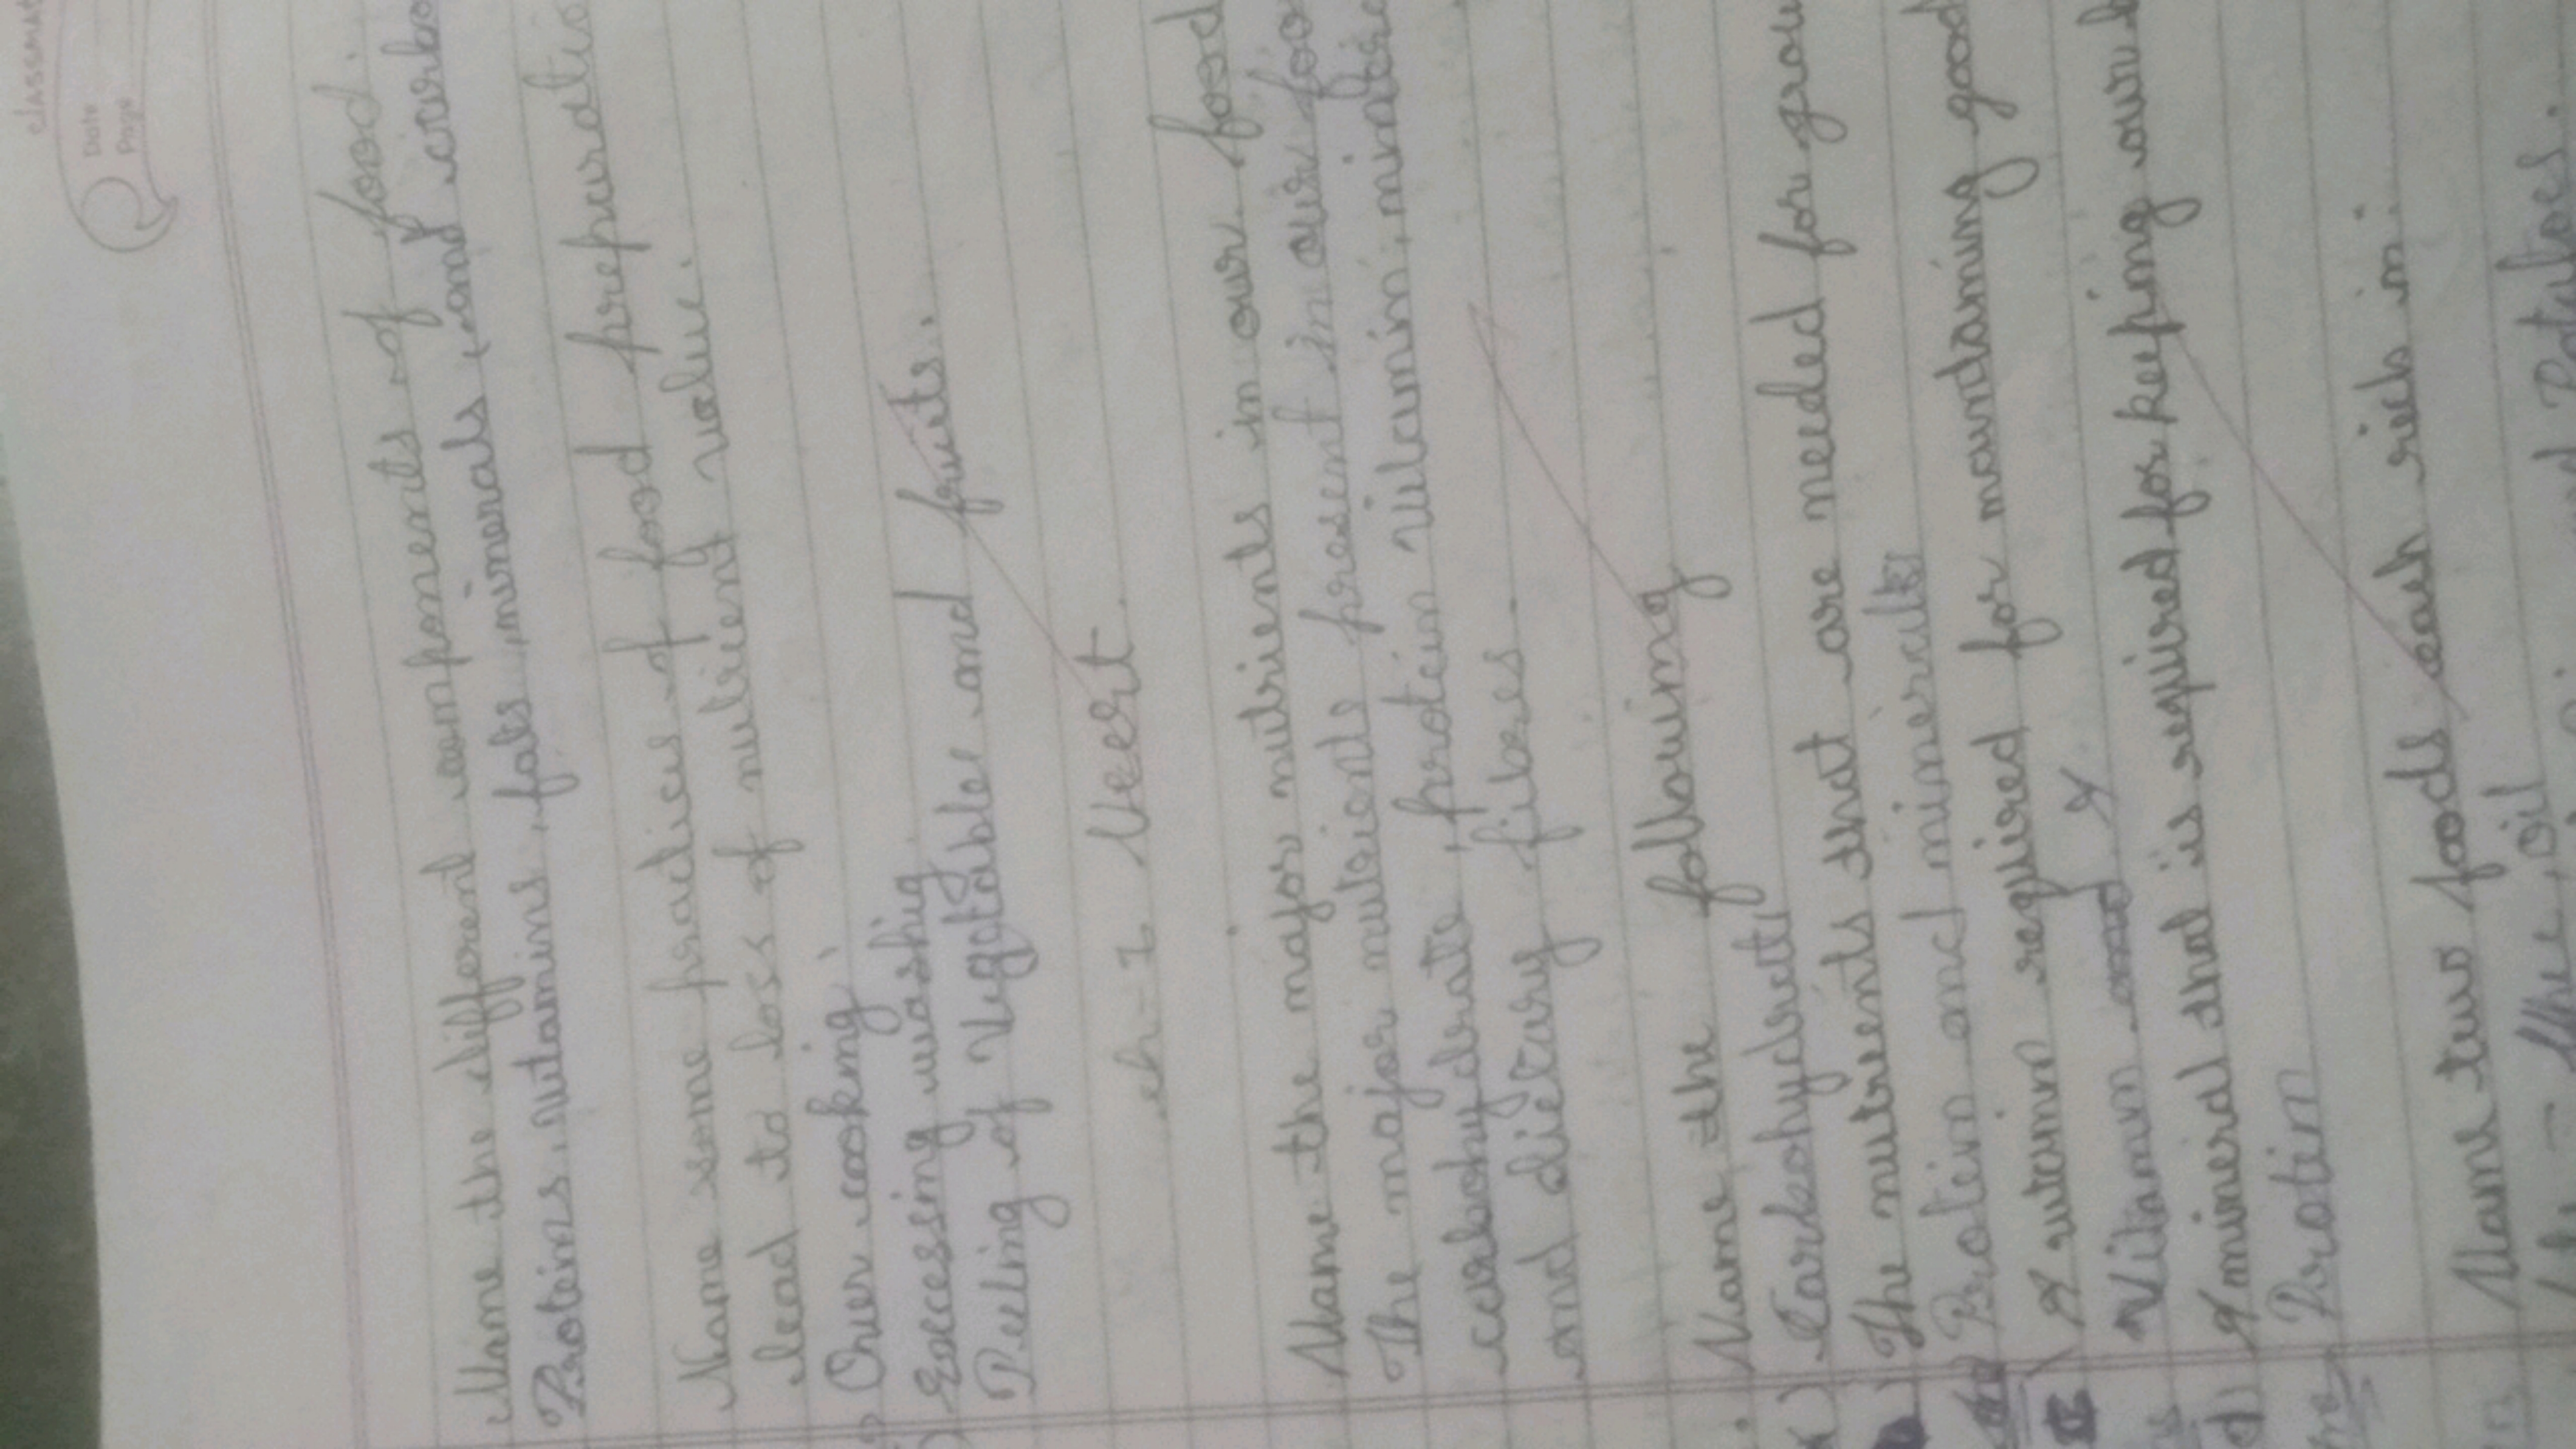 classmate
Date
Page
Name the different components of food.
Proteins, vitamins, fats, minerals, and carbo
Name some practices of food preparatio
lead to loss of nutrient value.
Over cooking.
Excessing washig
Peeling of Vegetables and fruits.
ch-1 Neert.
Name the major nutrients in our food
The major nutrients present in our foo
carbohydrate, protein vitamin, minera
and dietary fibres.
Name the following
Carbohydrate
The nutrients that are needed for grow
Protein and minerals
A vitamin required for maintaining good
Vitamin and A
d) A mineral that is required for keeping our b
Protin
Name two foods each rich in.
oil